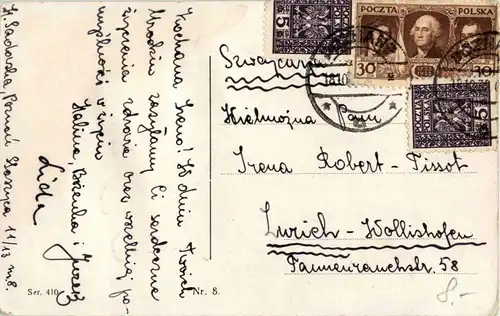 Kochana Ireno! W dniu Twoich
Urodzin zasyłamy Ci serdeczne
życzenia zdrowia oraz wszelkiej po-
myślności w życiu
Halina, Bożenka i Jurek
Lida
H. Sadowska, Poznań 11/13 m 8.
Ser. 410
Nr. 8.
POCZTA POLSKA
30
10
5
5
Szwajcaria
Wielmożna Pani
Irena Robert-Tissot
Zurich-Wollishofen
Tannenrauchstr. 58
8.-